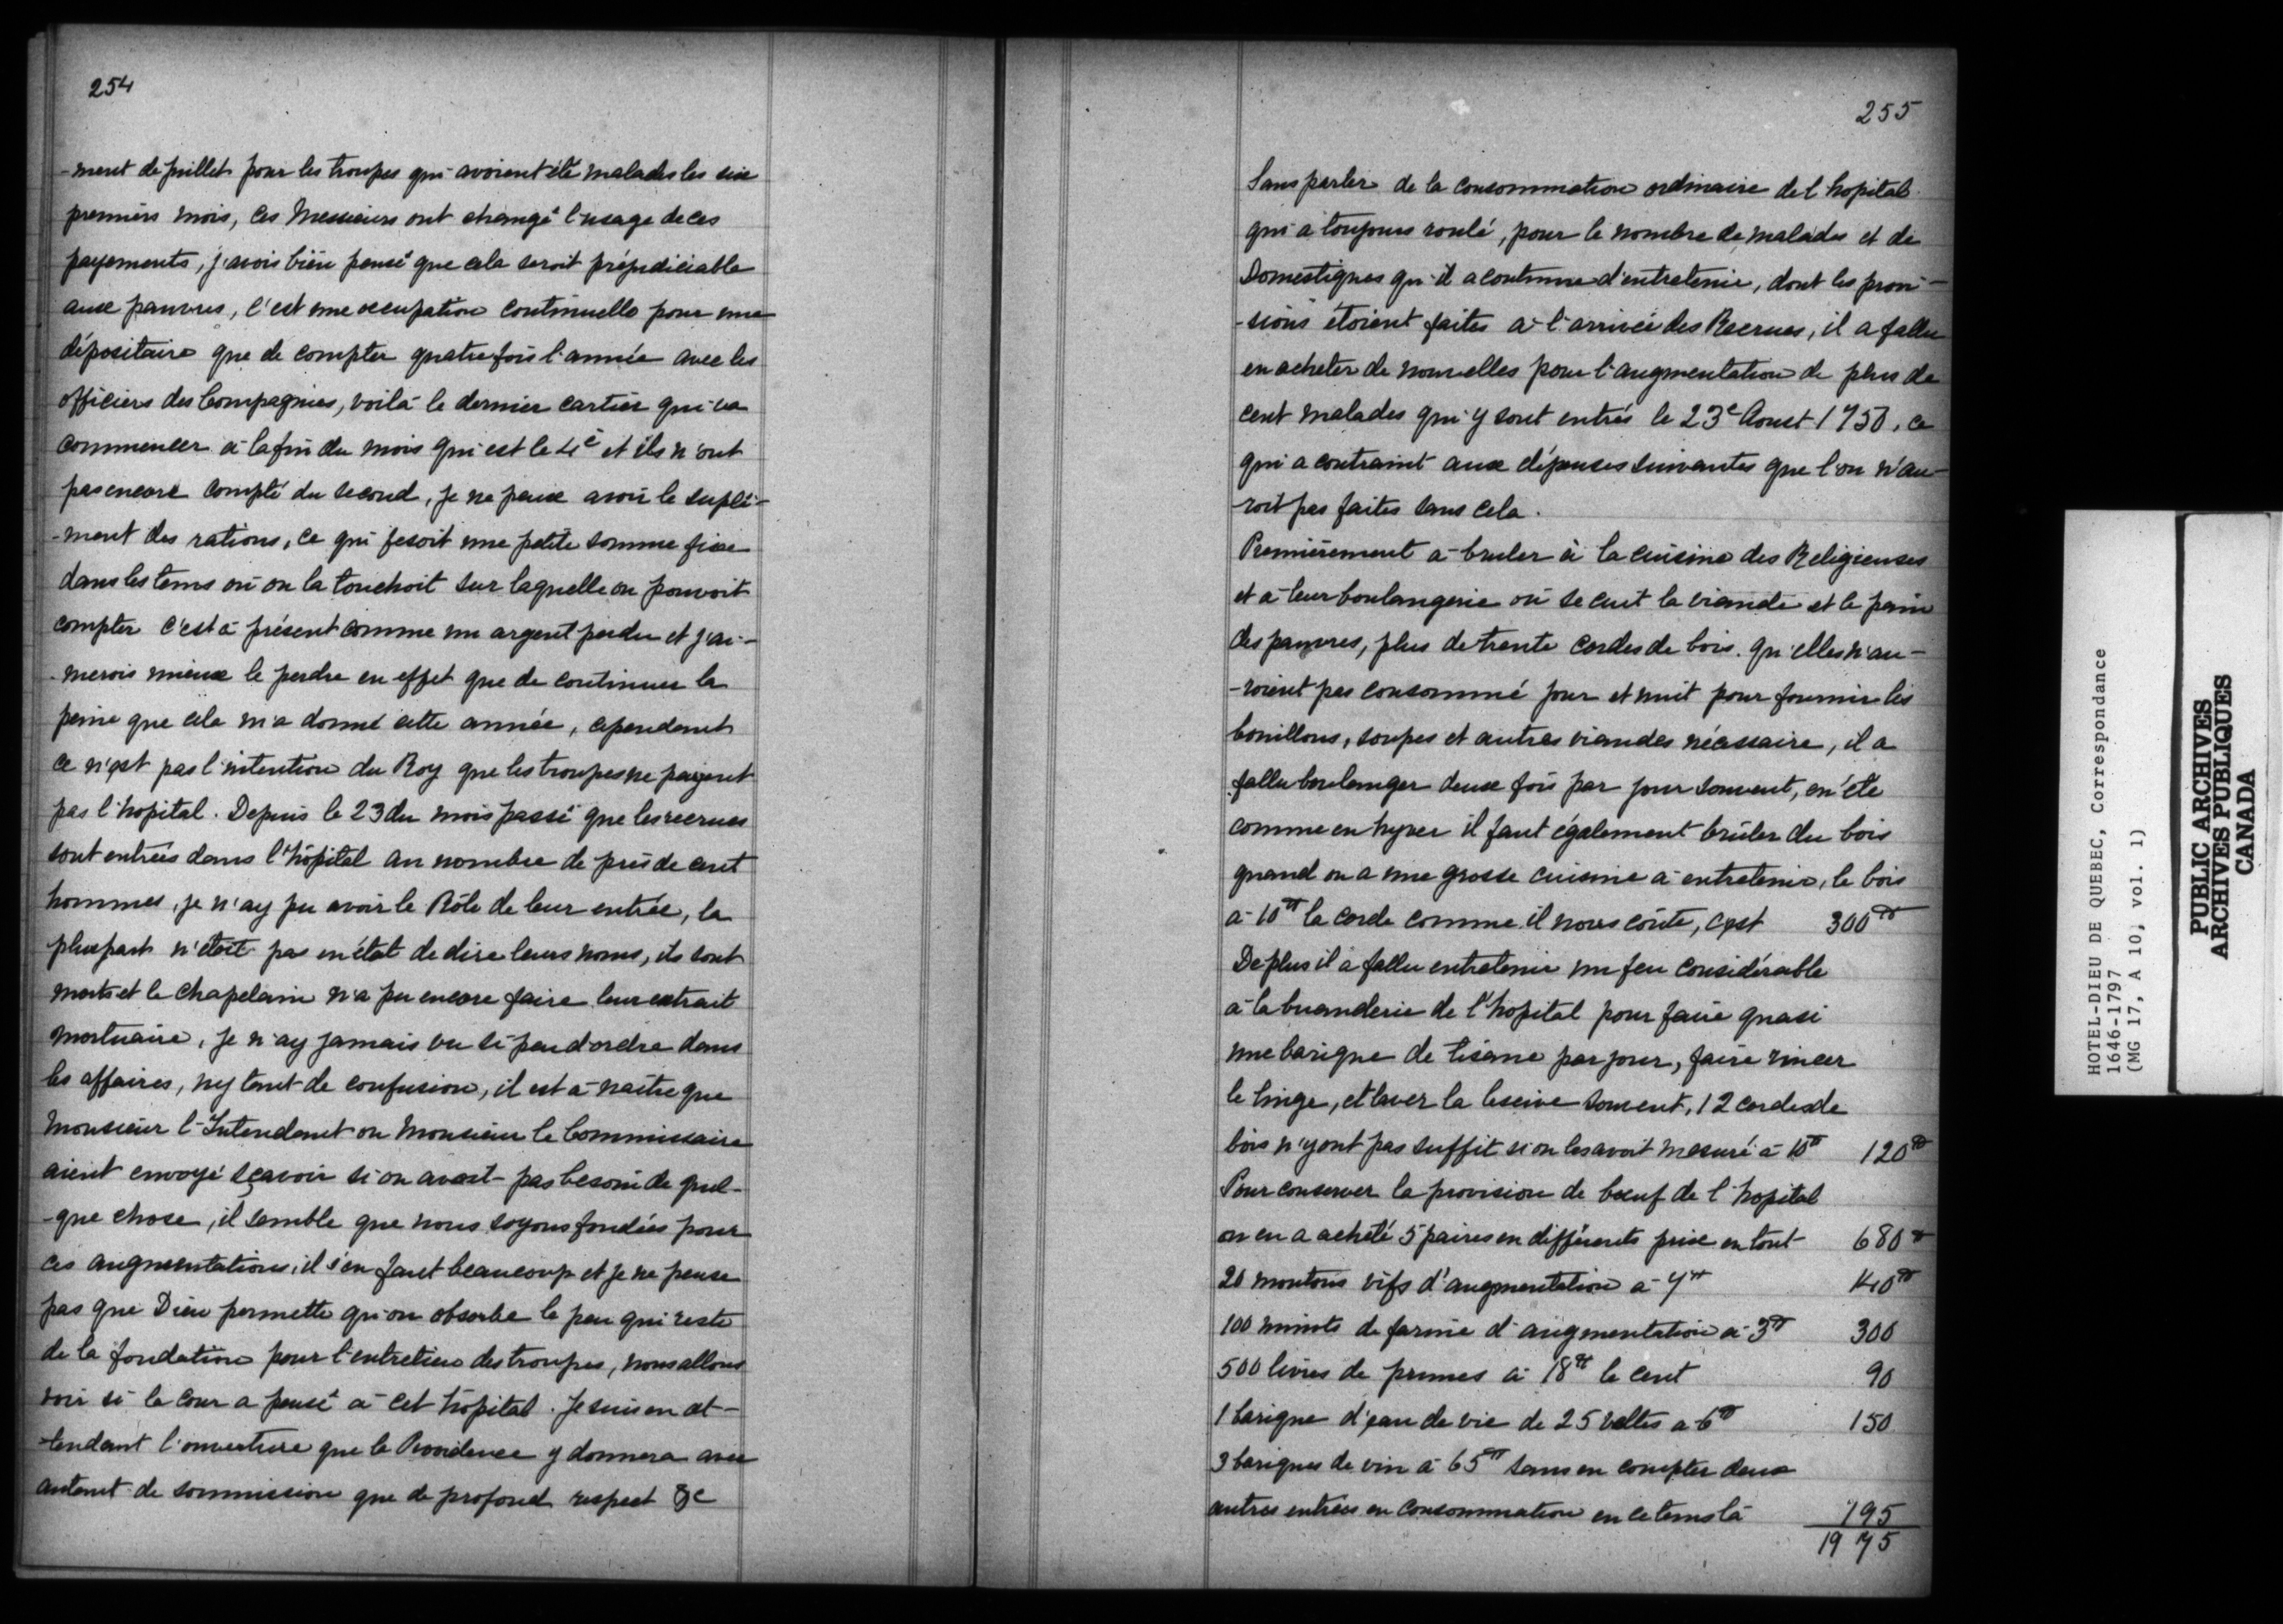 254
-ment de juillet pour les troupes qui avoient été malades les six
premiers mois, ces Messieurs ont changé l'usage de ces
payements, j'avois bien pensé que cela seroit préjudiciable
aux pauvres, c'est une occupation continuelle pour une
dépositaire que de compter quatre fois l'année avec les
officiers des Compagnies, voilà le dernier cartier qui va
commencer à la fin du mois qui est le 4e et ils n'ont
pas encore compté du second, je ne peux avoir le suplé-
-ment des rations, ce qui fesoit une petite somme fixe
dans les tems où on la touchoit sur laquelle on pouvoit
compter c'est à présent comme un argent perdu et j'ai-
-merois mieux le perdre en effet que de continuer la
peine que cela m'a donné cette année, cependant
ce n'est pas l'intention du Roy que les troupes ne payent
pas l'hopital. Depuis le 23 du mois passé que les recrues
sont entrées dans l'hôpital au nombre de près de cent
hommes, je n'ay pu avoir le Rôle de leur entrée, la
pluspart n'étoit pas en état de dire leurs noms, ils sont
morts et le chapelain n'a pu encore faire leur extrait
mortuaire, je n'ay jamais vu si peu d'ordre dans
les affaires, ny tant de confusion, il est à naître que
Monsieur l'Intendant ou Monsieur le Commissaire
aient envoyé sçavoir si on avoit pas besoin de quel-
-que chose, il semble que nous soyons fondées pour
ces augmentations, il s'en faut beaucoup et je ne pense
pas que Dieu permette qu'on absorbe le peu qui reste
de la fondation pour l'entretien des troupes, nous allons
voir si la cour a pensé à cet hôpital. Je suis en at-
-tendant l'ouverture que la Providence y donnera avec
autant de soummission que de profond respect &c
255
Sans parler de la consommation ordinaire de l'hopital
qui a toujours roulé, pour le nombre de malades et de
Domestiques qu'il a coutume d'entretenir, dont les provi-
-sions étoient faites à l'arrivée des Recrues, il a fallu
en acheter de nouvelles pour l'augmentation de plus de
cent malades qui y sont entrés le 23e Aoust 1750, ce
qui a contraint aux dépenses suivantes que l'on n'au-
-roit pas faites sans cela.
Premièrement à bruler à la cuisine des Religieuses
et à leur boulangerie où se cuit la viande et le pain
des pauvres, plus de trente cordes de bois qu'elles n'au-
-roient pas consommé jour et nuit pour fournir les
bouillons, soupes et autres viandes nécessaire, il a
fallu boulanger deux fois par jour souvent, en été
comme en hyver il faut également brûler du bois
quand on a une grosse cuisine à entretenir, le bois
à 10tt la corde comme il nous coûte, c'est 300tt
De plus il a fallu entretenir un feu considérable
à la buanderie de l'hopital pour faire quasi
une barique de tisane par jour, faire rincer
le linge, et laver la lescive souvent, 12 cordes de
bois n'y ont pas suffit si on les avoit mesuré à 10tt 120tt
Pour conserver la provision de bœuf de l'hopital
on en a acheté 5 paires en différents prix en tout 680tt
20 moutons vifs d'augmentation à 7tt 140tt
100 minots de farine d'augmentation à 3tt 300
500 livres de prunes à 18tt le cent 90
1 barique d'eau de vie de 25 veltes à 6tt 150
3 bariques de vin à 65tt sans en compter deux
autres entrées en consommation en ce tems là 195
1975
HOTEL-DIEU DE QUEBEC, Correspondance
1646-1797
(MG 17, A 10, vol. 1)
PUBLIC ARCHIVES
ARCHIVES PUBLIQUES
CANADA